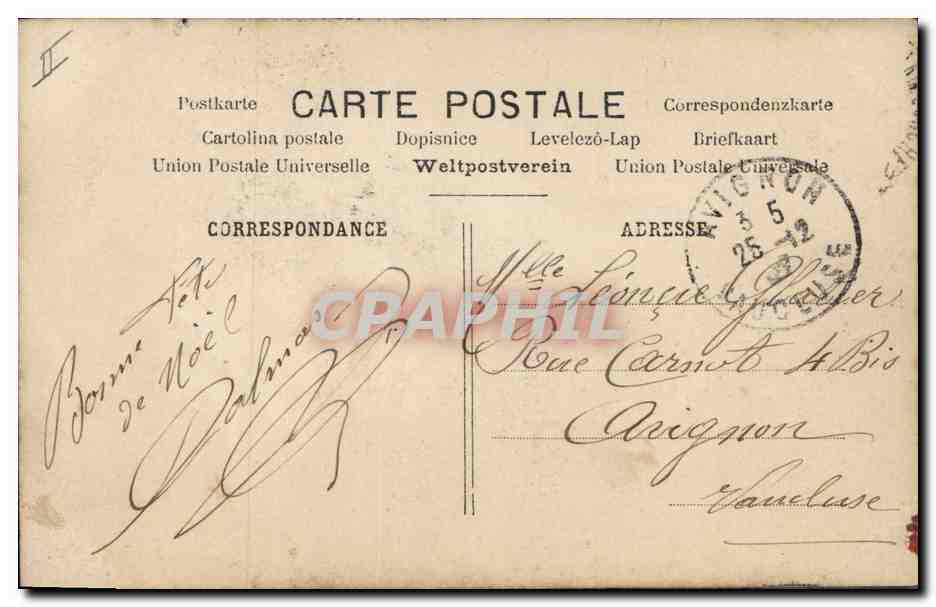 II
Postkarte CARTE POSTALE Correspondenzkarte
Cartolina postale Dopisnice Levelezö-Lap Briefkaart
Union Postale Universelle Weltpostverein Union Postale Universale
CORRESPONDANCE
ADRESSE
AVIGNON
3 5
25 -12
VAUCLUSE
Bonne fête
de Noël
Dalmas
Mlle Léonçie
Rue Carnot 4 Bis
Avignon
Vaucluse
CPARHIL